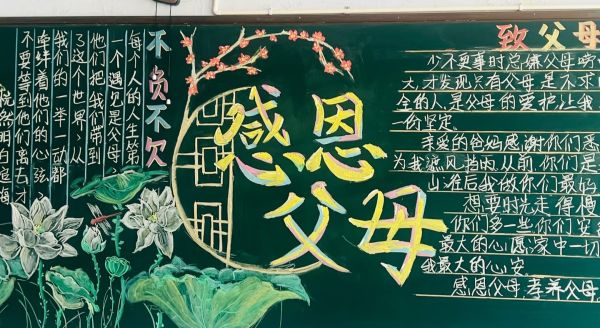 不负不欠
每个人的人生第
一个遇见是父母
他们把我们带到
了这个世界,从
我们的一举一动都
牵绊着他们的心弦
不要等到他们离去才
恍然明白
感恩
父母
致父母
少不更事时总嫌父母唠
才发现只有父母是不求
全的人,是父母的爱护让我
一份坚定。
亲爱的爸妈感谢你们悉
为我遮风挡雨,从前,你们是
后我做你们最
想要时先走得慢
你们多一些,你们安
最大的心愿,家中一切
我最大的心安。
感恩父母,孝养父母